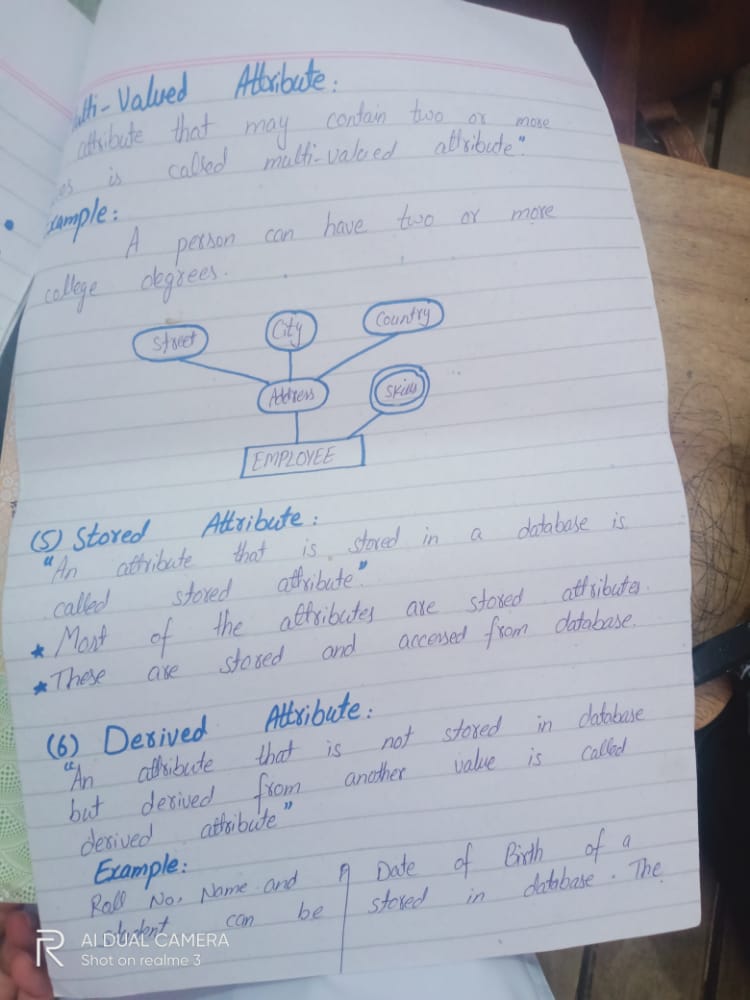 ulti-Valued Attribute:
attribute that may contain two or more
es is called multi-valued attribute"
xample:
A person can have two or more
college degrees.
Street
City
Country
Address
Skills
EMPLOYEE
(5) Stored Attribute:
"An attribute that is stored in a database is
called stored attribute"
★ Most of the attributes are stored attributes.
★ These are stored and accessed from database.
(6) Derived Attribute:
"An attribute that is not stored in database
but derived from another value is called
derived attribute"
Example:
Roll No, Name and Date of Birth of a
student can be stored in database. The
R AI DUAL CAMERA
Shot on realme 3